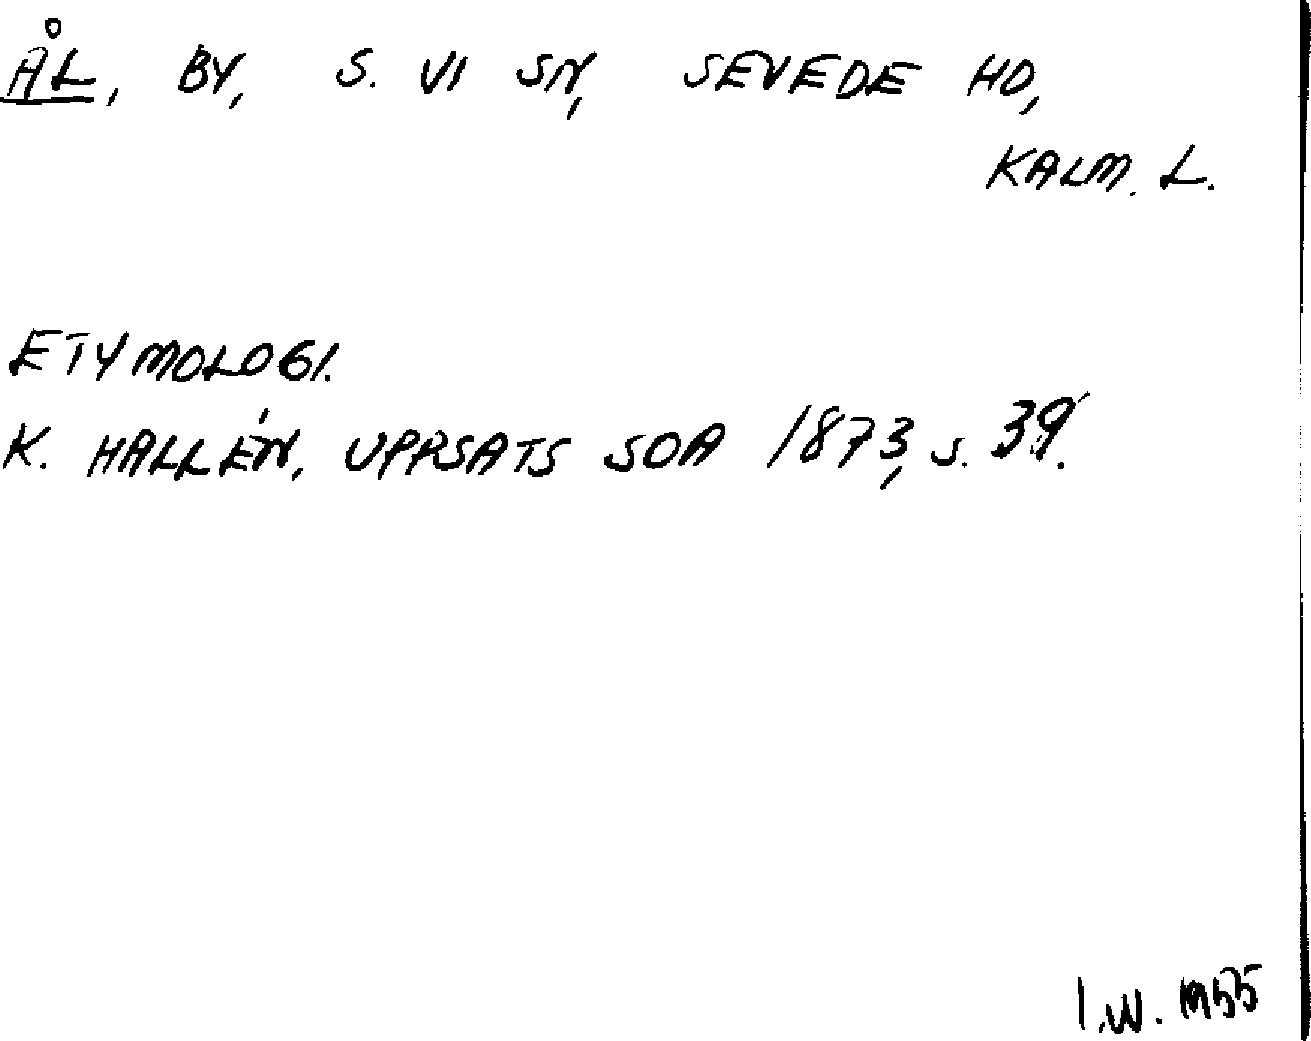 ÅL, BY, S. VI SN, SEVEDE HD,
KALM. L.
ETYMOLOGI.
K. HALLÉN, UPPSATS SOA 1873, S. 39.
I.W. 1955